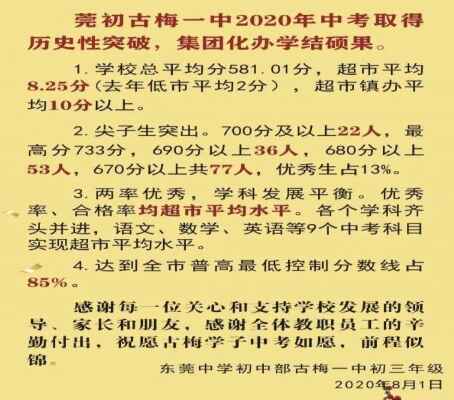 莞初古梅一中2020年中考取得
历史性突破，集团化办学结硕果。
1.学校总平均分581.01分，超市平均
8.25分(去年低市平均2分），超市镇办平
均10分以上。
2.尖子生突出。700分及以上22人，最
高分733分，690分以上36人，680分以上
53人，670分以上共77人，优秀生占13%。
3.两率优秀，学科发展平衡。优秀
率、合格率均超市平均水平。各个学科齐
头并进，语文、数学、英语等9个中考科目
实现超市平均水平。
4.达到全市普高最低控制分数线占
85%。
感谢每一位关心和支持学校发展的领
导、家长和朋友，感谢全体教职员工的辛
勤付出，祝愿古梅学子中考如愿，前程似
锦。
东莞中学初中部古梅一中初三年级
2020年8月1日